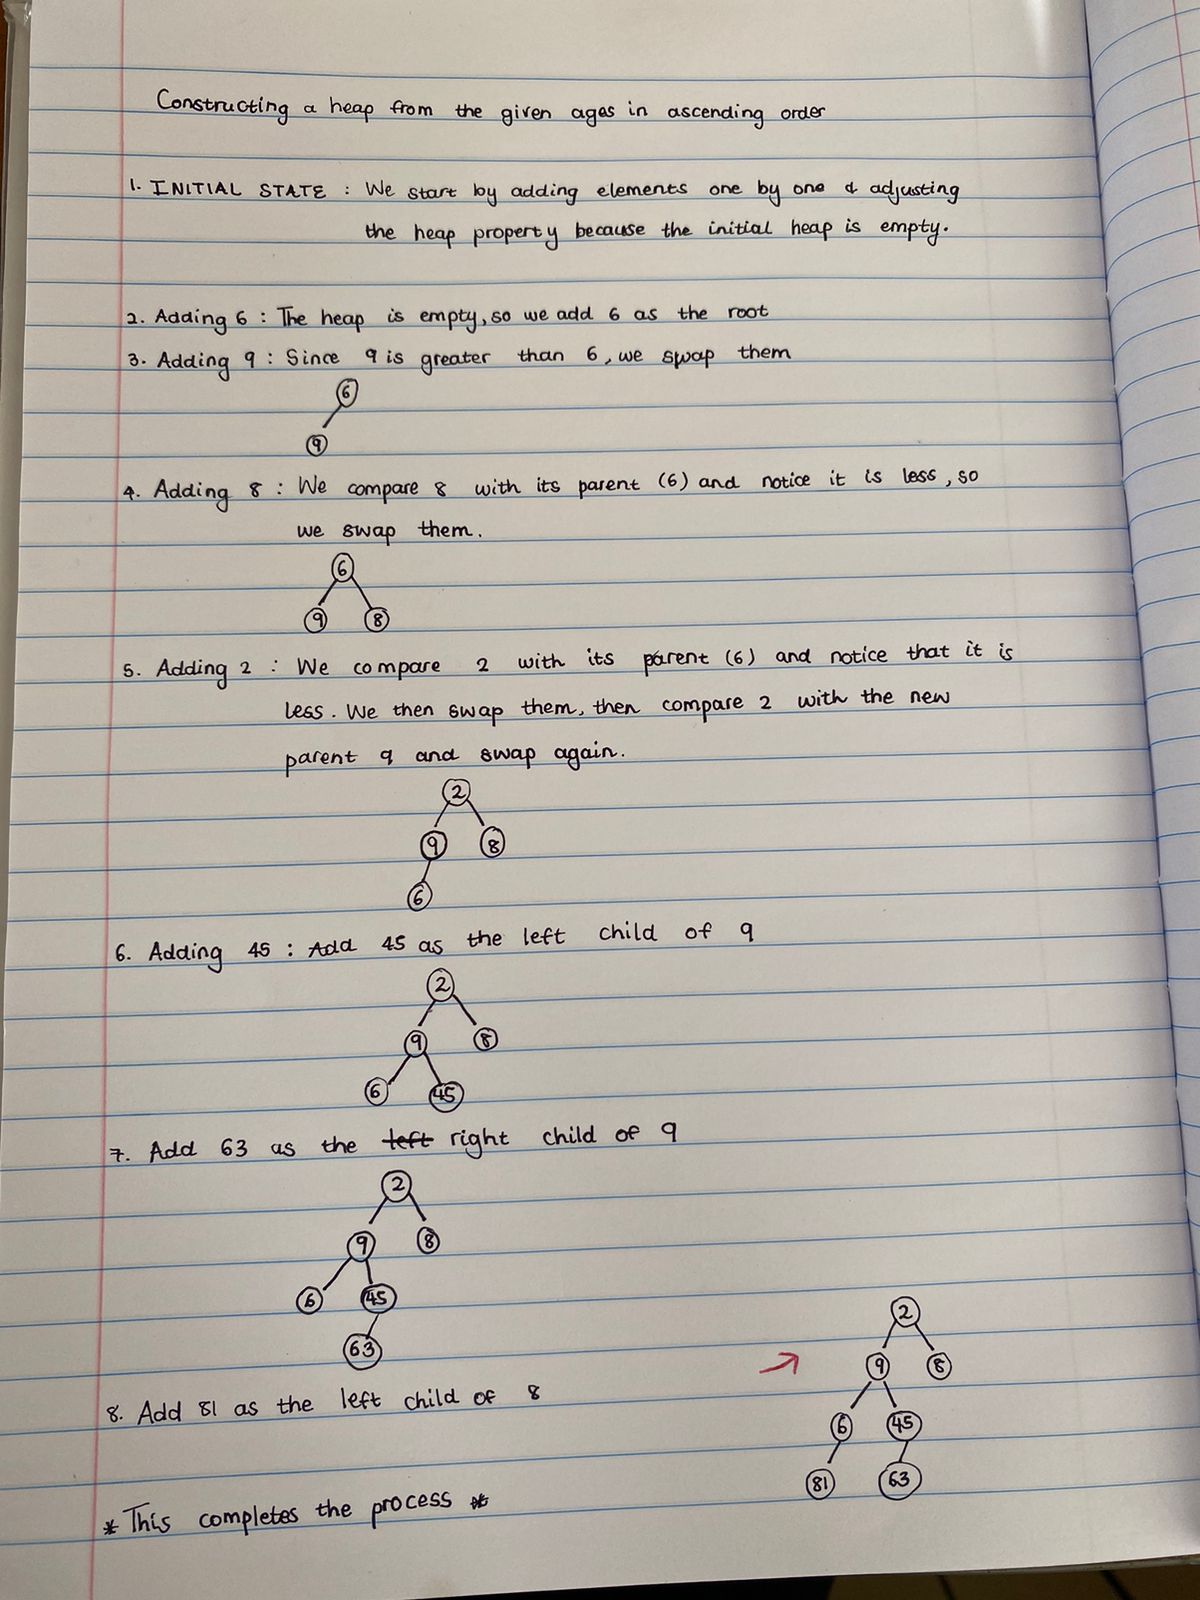 Constructing a heap from the given ages in ascending order
1. INITIAL STATE : We start by adding elements one by one & adjusting
the heap property because the initial heap is empty.
2. Adding 6 : The heap is empty, so we add 6 as the root
3. Adding 9 : Since 9 is greater than 6, we swap them
6
9
4. Adding 8 : We compare 8 with its parent (6) and notice it is less, so
we swap them.
6
9 8
5. Adding 2 : We compare 2 with its parent (6) and notice that it is
less. We then swap them, then compare 2 with the new
parent 9 and swap again.
2
9 8
6
6. Adding 45 : Add 45 as the left child of 9
2
9 8
6 45
7. Add 63 as the left right child of 9
2
9 8
6 45
63
8. Add 81 as the left child of 8
2
9 8
6 45
81 63
* This completes the process *